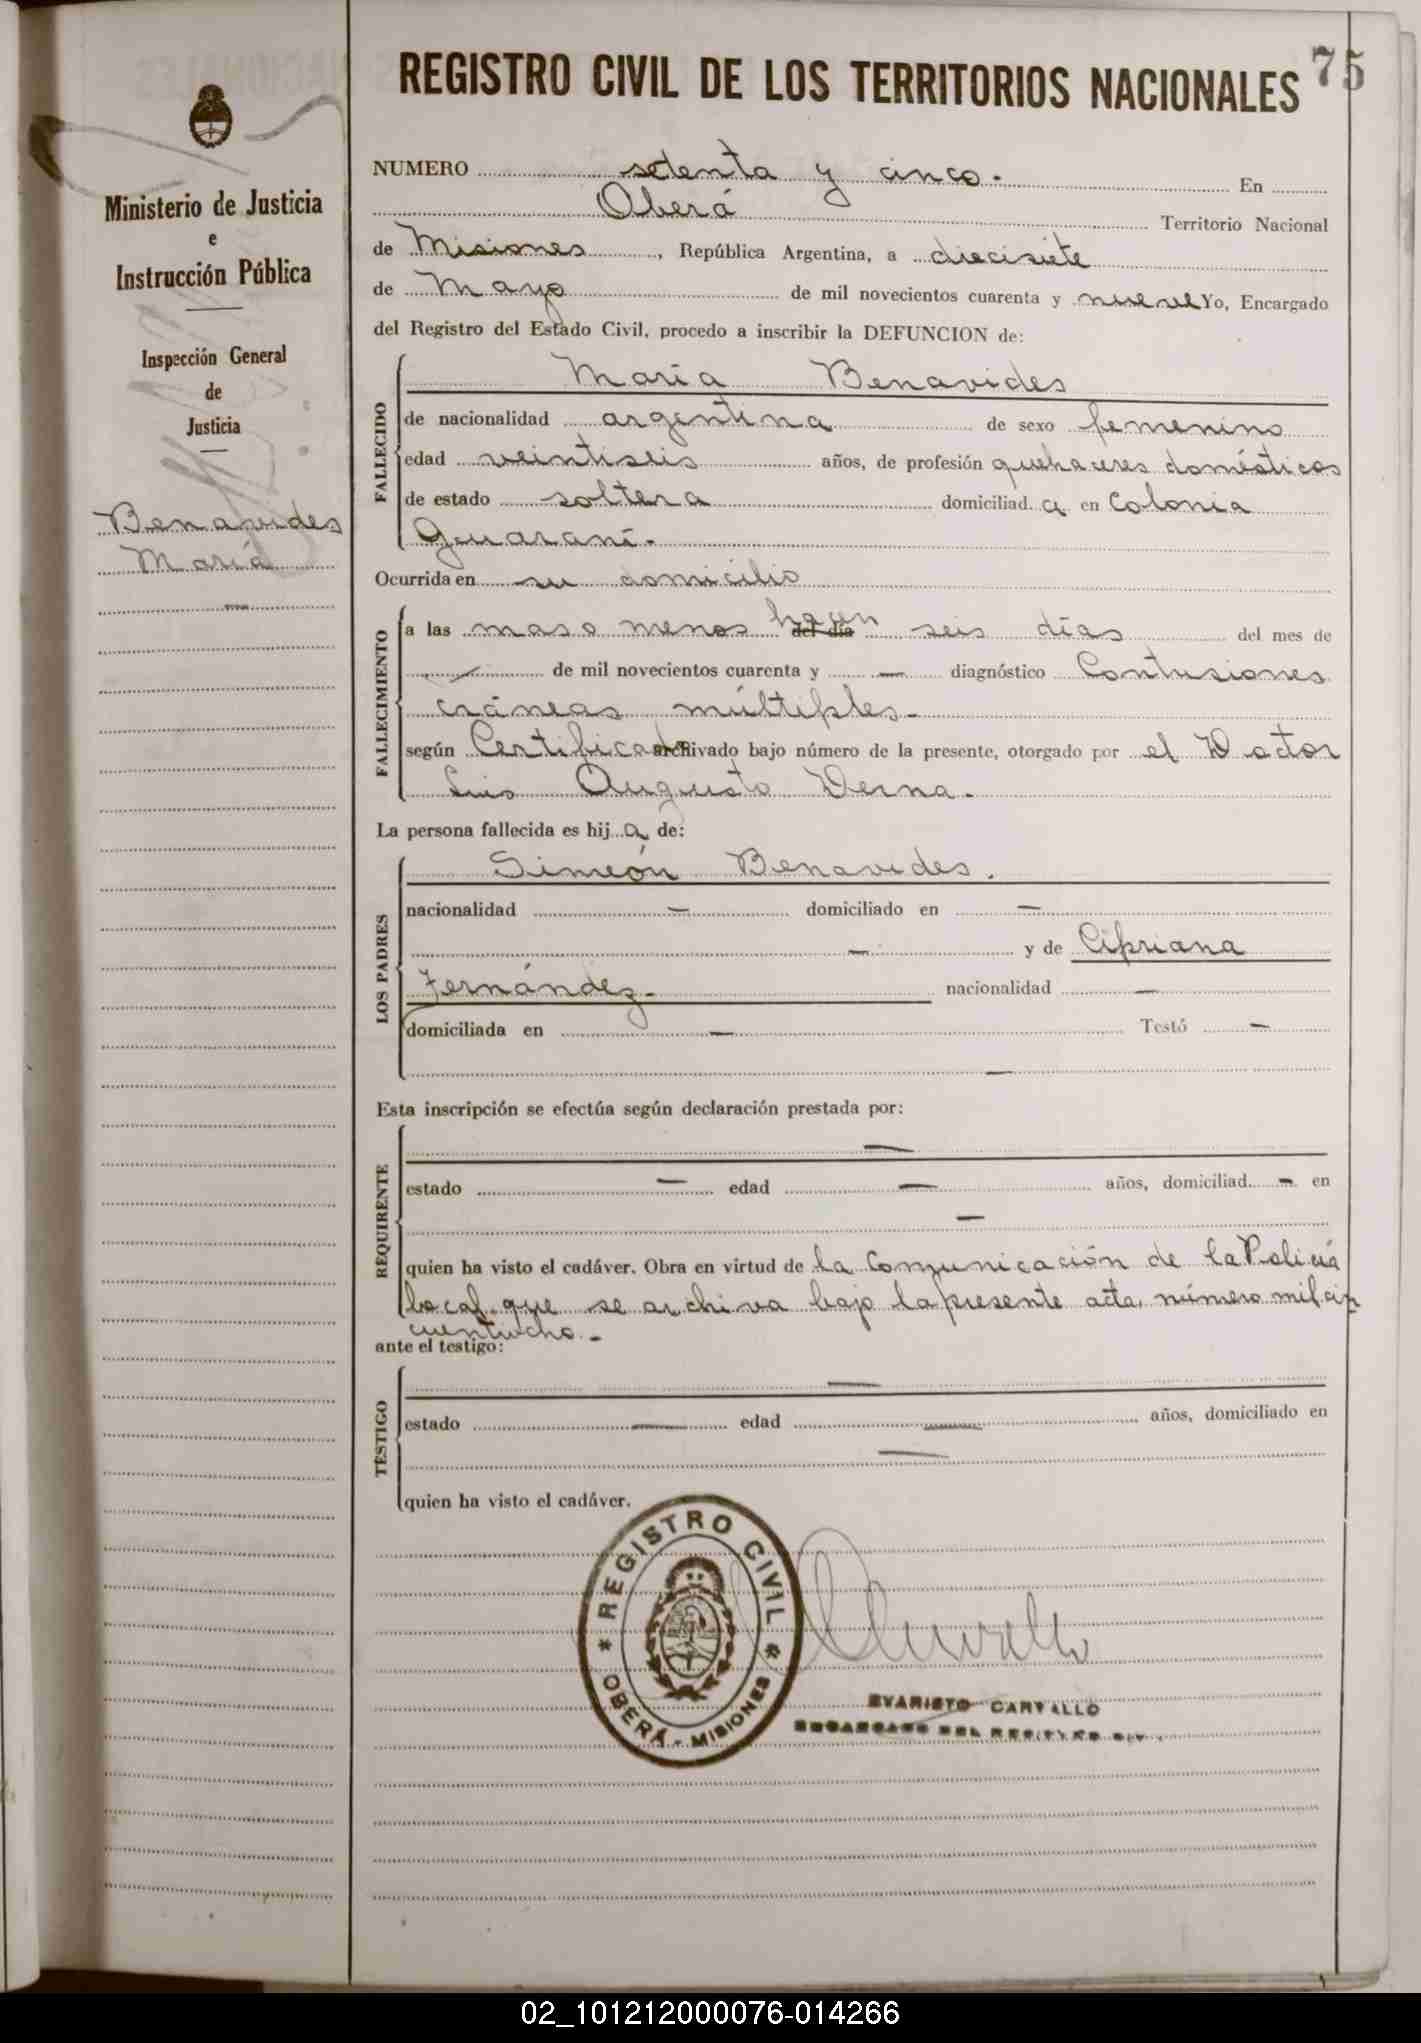 75
REGISTRO CIVIL DE LOS TERRITORIOS NACIONALES
Ministerio de Justicia
e
Instrucción Pública
Inspección General
de
Justicia
Benavides
María
NUMERO setenta y cinco. En
Oberá Territorio Nacional
de Misiones, República Argentina, a diecisiete
de Mayo de mil novecientos cuarenta y nueve Yo, Encargado
del Registro del Estado Civil, procedo a inscribir la DEFUNCION de:
FALLECIDO
María Benavides
de nacionalidad argentina de sexo femenino
edad veintiseis años, de profesión quehaceres domésticos
de estado soltera domiciliad a en Colonia
Guaraní.
Ocurrida en su domicilio
FALLECIMIENTO
a las mas o menos hacen del día seis días del mes de
de mil novecientos cuarenta y — diagnóstico Contusiones
cráneas múltiples.
según Certificado archivado bajo número de la presente, otorgado por el Doctor
Luis Augusto Derna.
La persona fallecida es hij a de:
LOS PADRES
Simeón Benavides.
nacionalidad — domiciliado en —
— y de Cipriana
Fernández. nacionalidad —
domiciliada en — Testó —
—
Esta inscripción se efectúa según declaración prestada por:
REQUIRENTE
—
estado — edad — años, domiciliad — en
—
quien ha visto el cadáver. Obra en virtud de la Comunicación de la Policía
local que se archiva bajo la presente acta, número mil cin
cuentiocho.-
ante el testigo:
TESTIGO
—
estado — edad — años, domiciliado en
—
quien ha visto el cadáver.
REGISTRO CIVIL
* OBERÁ - MISIONES *
EVARISTO CARVALLO
ENCARGADO DEL REGISTRO CIV.
02_101212000076-014266